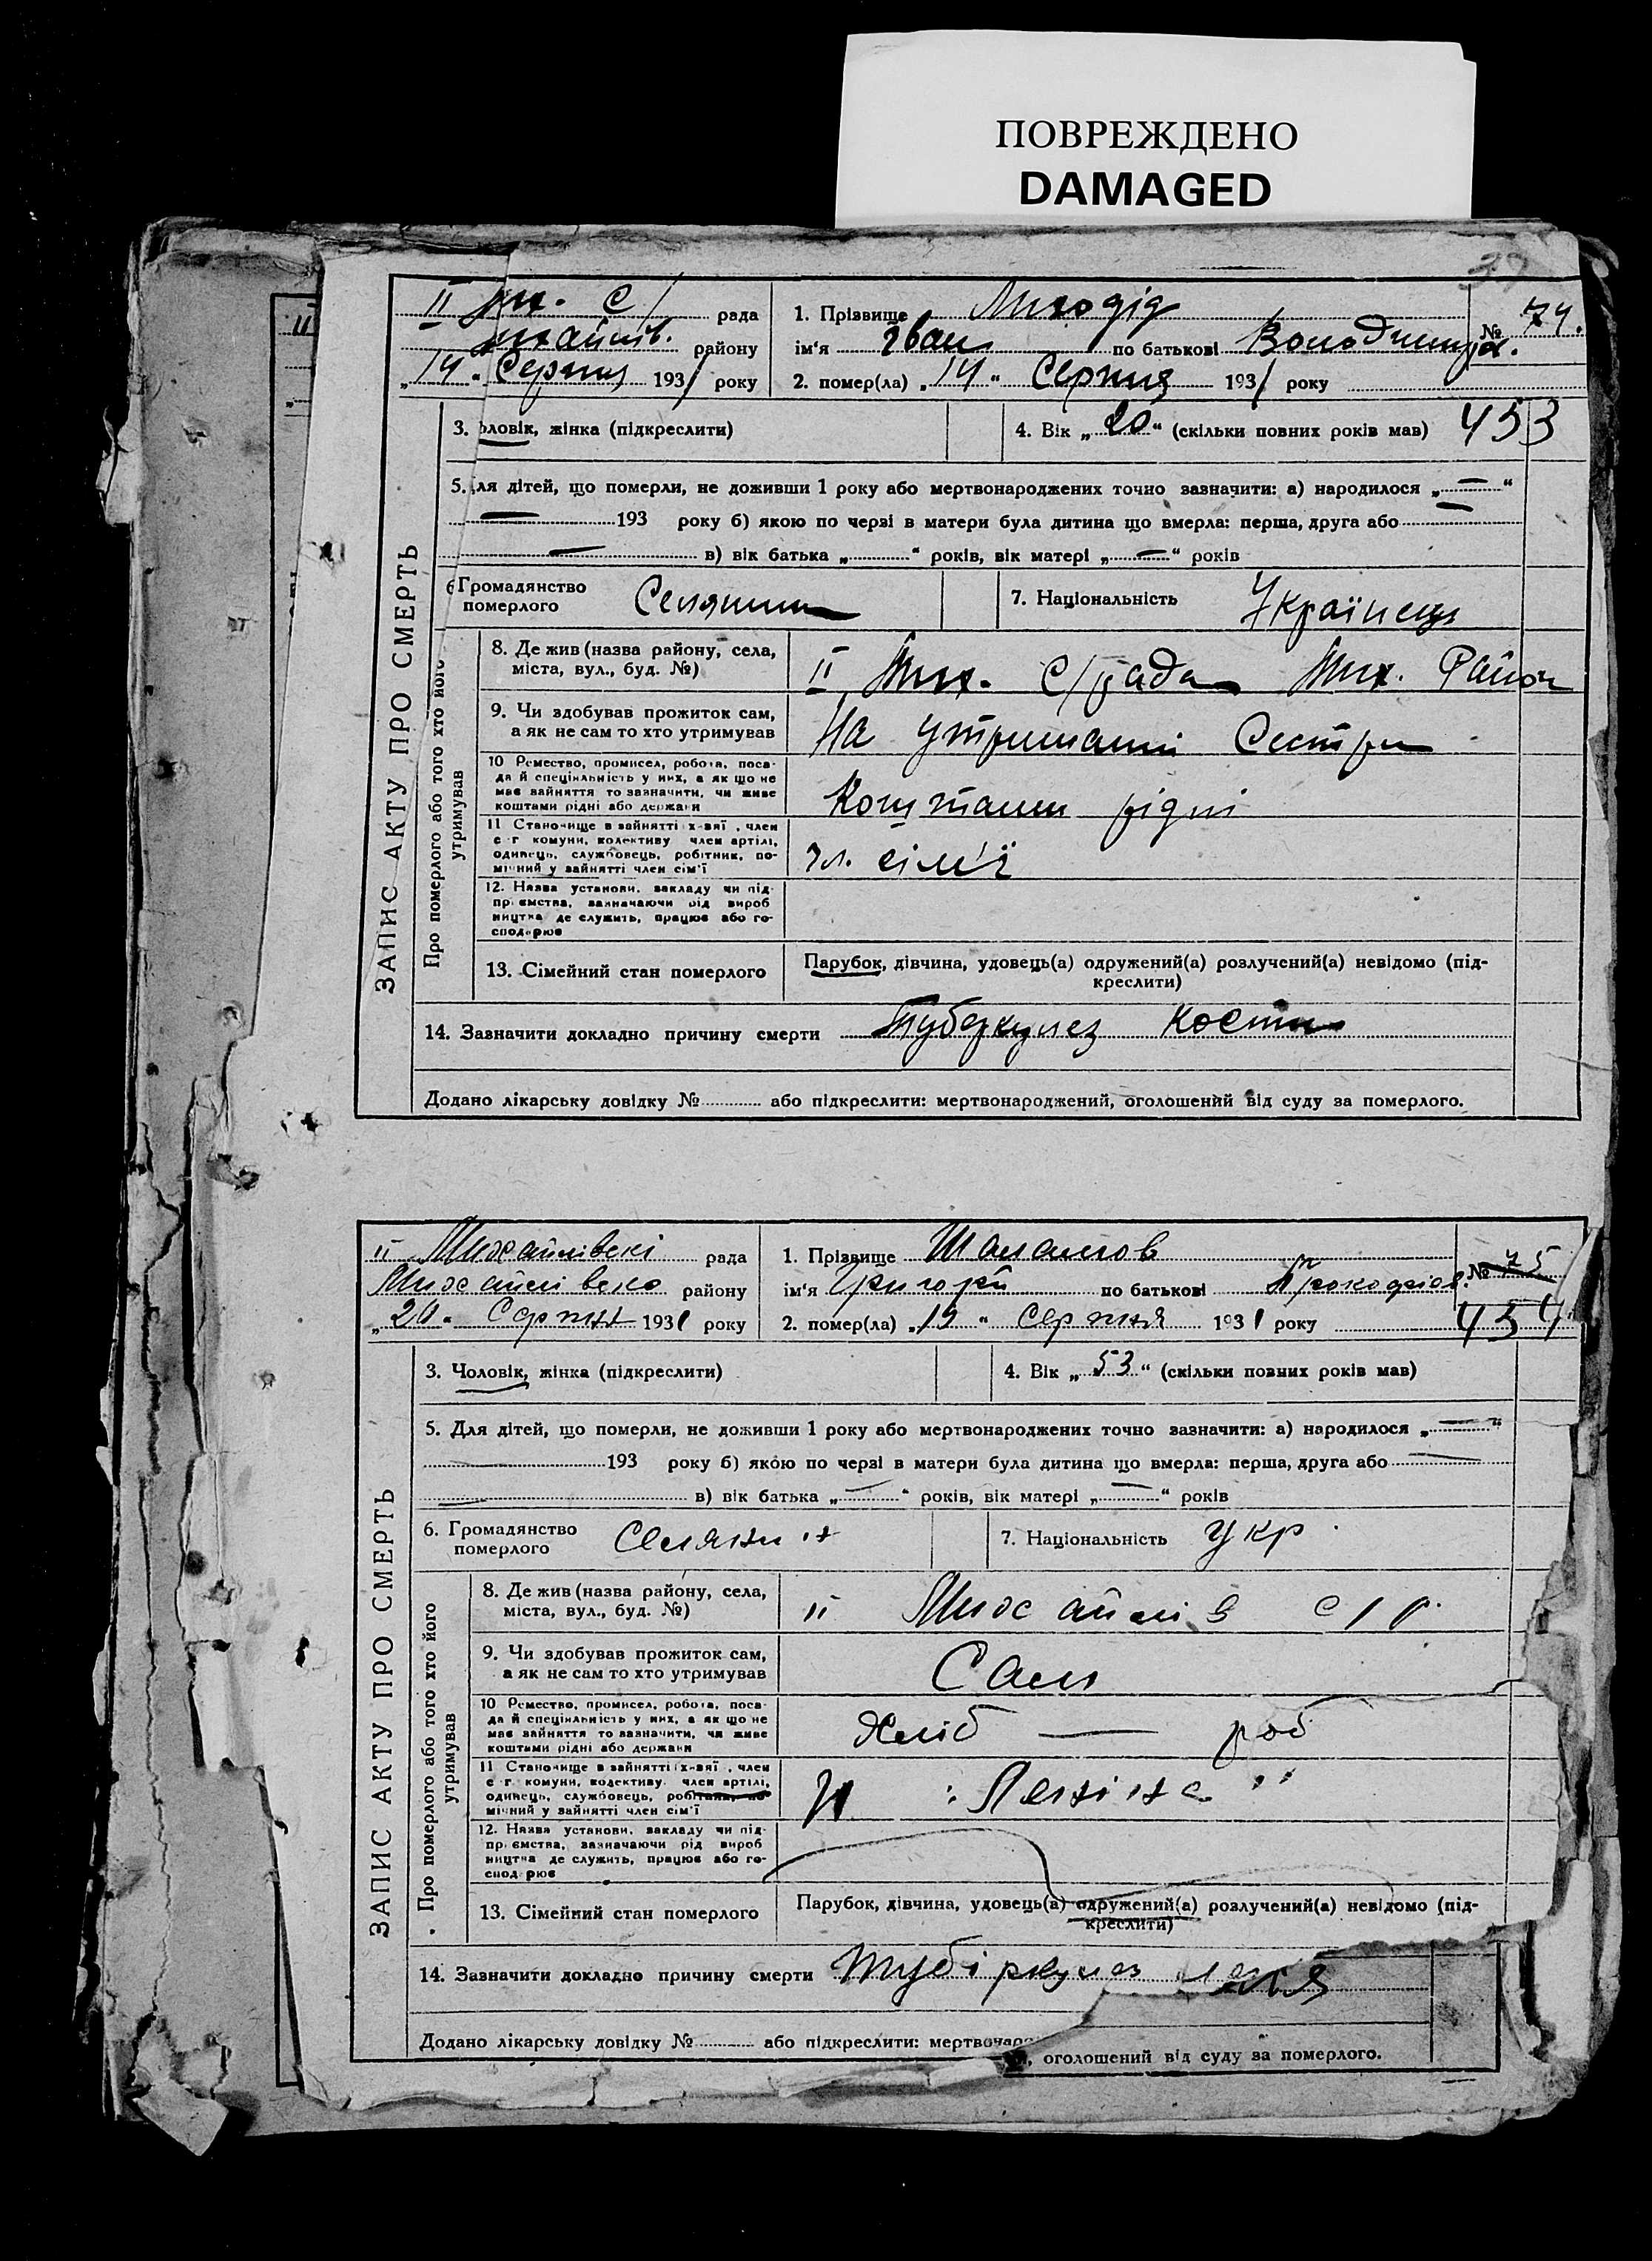 ПОВРЕЖДЕНО
DAMAGED
ІІ с/ рада
район у
"14" Серпня 1931 року
1. Прізвище Лиходід
№ 74.
ім'я Іван по батькові Володимир.
2. помер(ла) "14" Серпня 1931 року
ЗАПИС АКТУ ПРО СМЕРТЬ
3. оловік, жінка (підкреслити)
4. Вік „20“ (скільки повних років мав) 453
5. ля дітей, що померли, не доживши 1 року або мертвонароджених точно зазначити: а) народилося „—“
— 193 року б) якою по черзі в матери була дитина що вмерла: перша, друга або —
— в) вік батька „ “ років, вік матері „—“ років
6 Громадянство померлого Селянин
7. Національність Українець
Про померлого або того хто його утримував
8. Де жив (назва району, села, міста, вул., буд. №)
ІІ Мих. с/рада Мих. Район
9. Чи здобував прожиток сам, а як не сам то хто утримував
На утриманні Сестри
10 Ремество, промисел, робота, посада й спеціяльність у них, а як що не має зайняття то зазначити, чи живе коштами рідні або держави
Коштами рідні
11 Становище в зайнятті х-вяї, член с-г комуни, колективу член артілі, одинець, службовець, робітник, помічний у зайнятті член сім'ї
чл. сім'ї
12. Назва установи, закладу чи підприємства, зазначаючи рід виробництва де служить, працює або господарює
13. Сімейний стан померлого
Парубок, дівчина, удовець(а) одружений(а) розлучений(а) невідомо (підкреслити)
14. Зазначити докладно причину смерти Туберкулез кости
Додано лікарську довідку № або підкреслити: мертвонароджений, оголошений від суду за померлого.
ІІ Михайлівскі рада
Михайлівско району
„20“ Серпня 1931 року
1. Прізвище Шаламов
№ 75
ім'я Григорій по батькові Прокофіов.
2. помер(ла) „19“ Серпня 1931 року 454
ЗАПИС АКТУ ПРО СМЕРТЬ
3. Чоловік, жінка (підкреслити)
4. Вік „53“ (скільки повних років мав)
5. Для дітей, що померли, не доживши 1 року або мертвонароджених точно зазначити: а) народилося „—“
— 193 року б) якою по черзі в матери була дитина що вмерла: перша, друга або —
— в) вік батька „—“ років, вік матері „—“ років
6. Громадянство померлого Селянин
7. Національність Укр.
Про померлого або того хто його утримував
8. Де жив (назва району, села, міста, вул., буд. №)
ІІ Михайлів с/р.
9. Чи здобував прожиток сам, а як не сам то хто утримував
Сам
10 Ремество, промисел, робота, посада й спеціяльність у них, а як що не має зайняття то зазначити, чи живе коштами рідні або держави
Хліб — роб
11 Становище в зайнятті х-вяї, член с-г комуни, колективу член артілі, одинець, службовець, робітник, помічний у зайнятті член сім'ї
"Леніна"
12. Назва установи, закладу чи підприємства, зазначаючи рід виробництва де служить, працює або господарює
13. Сімейний стан померлого
Парубок, дівчина, удовець(а) одружений(а) розлучений(а) невідомо (підкреслити)
14. Зазначити докладно причину смерти Тубіркулез
Додано лікарську довідку № або підкреслити: мертвонаро
, оголошений від суду за померлого.